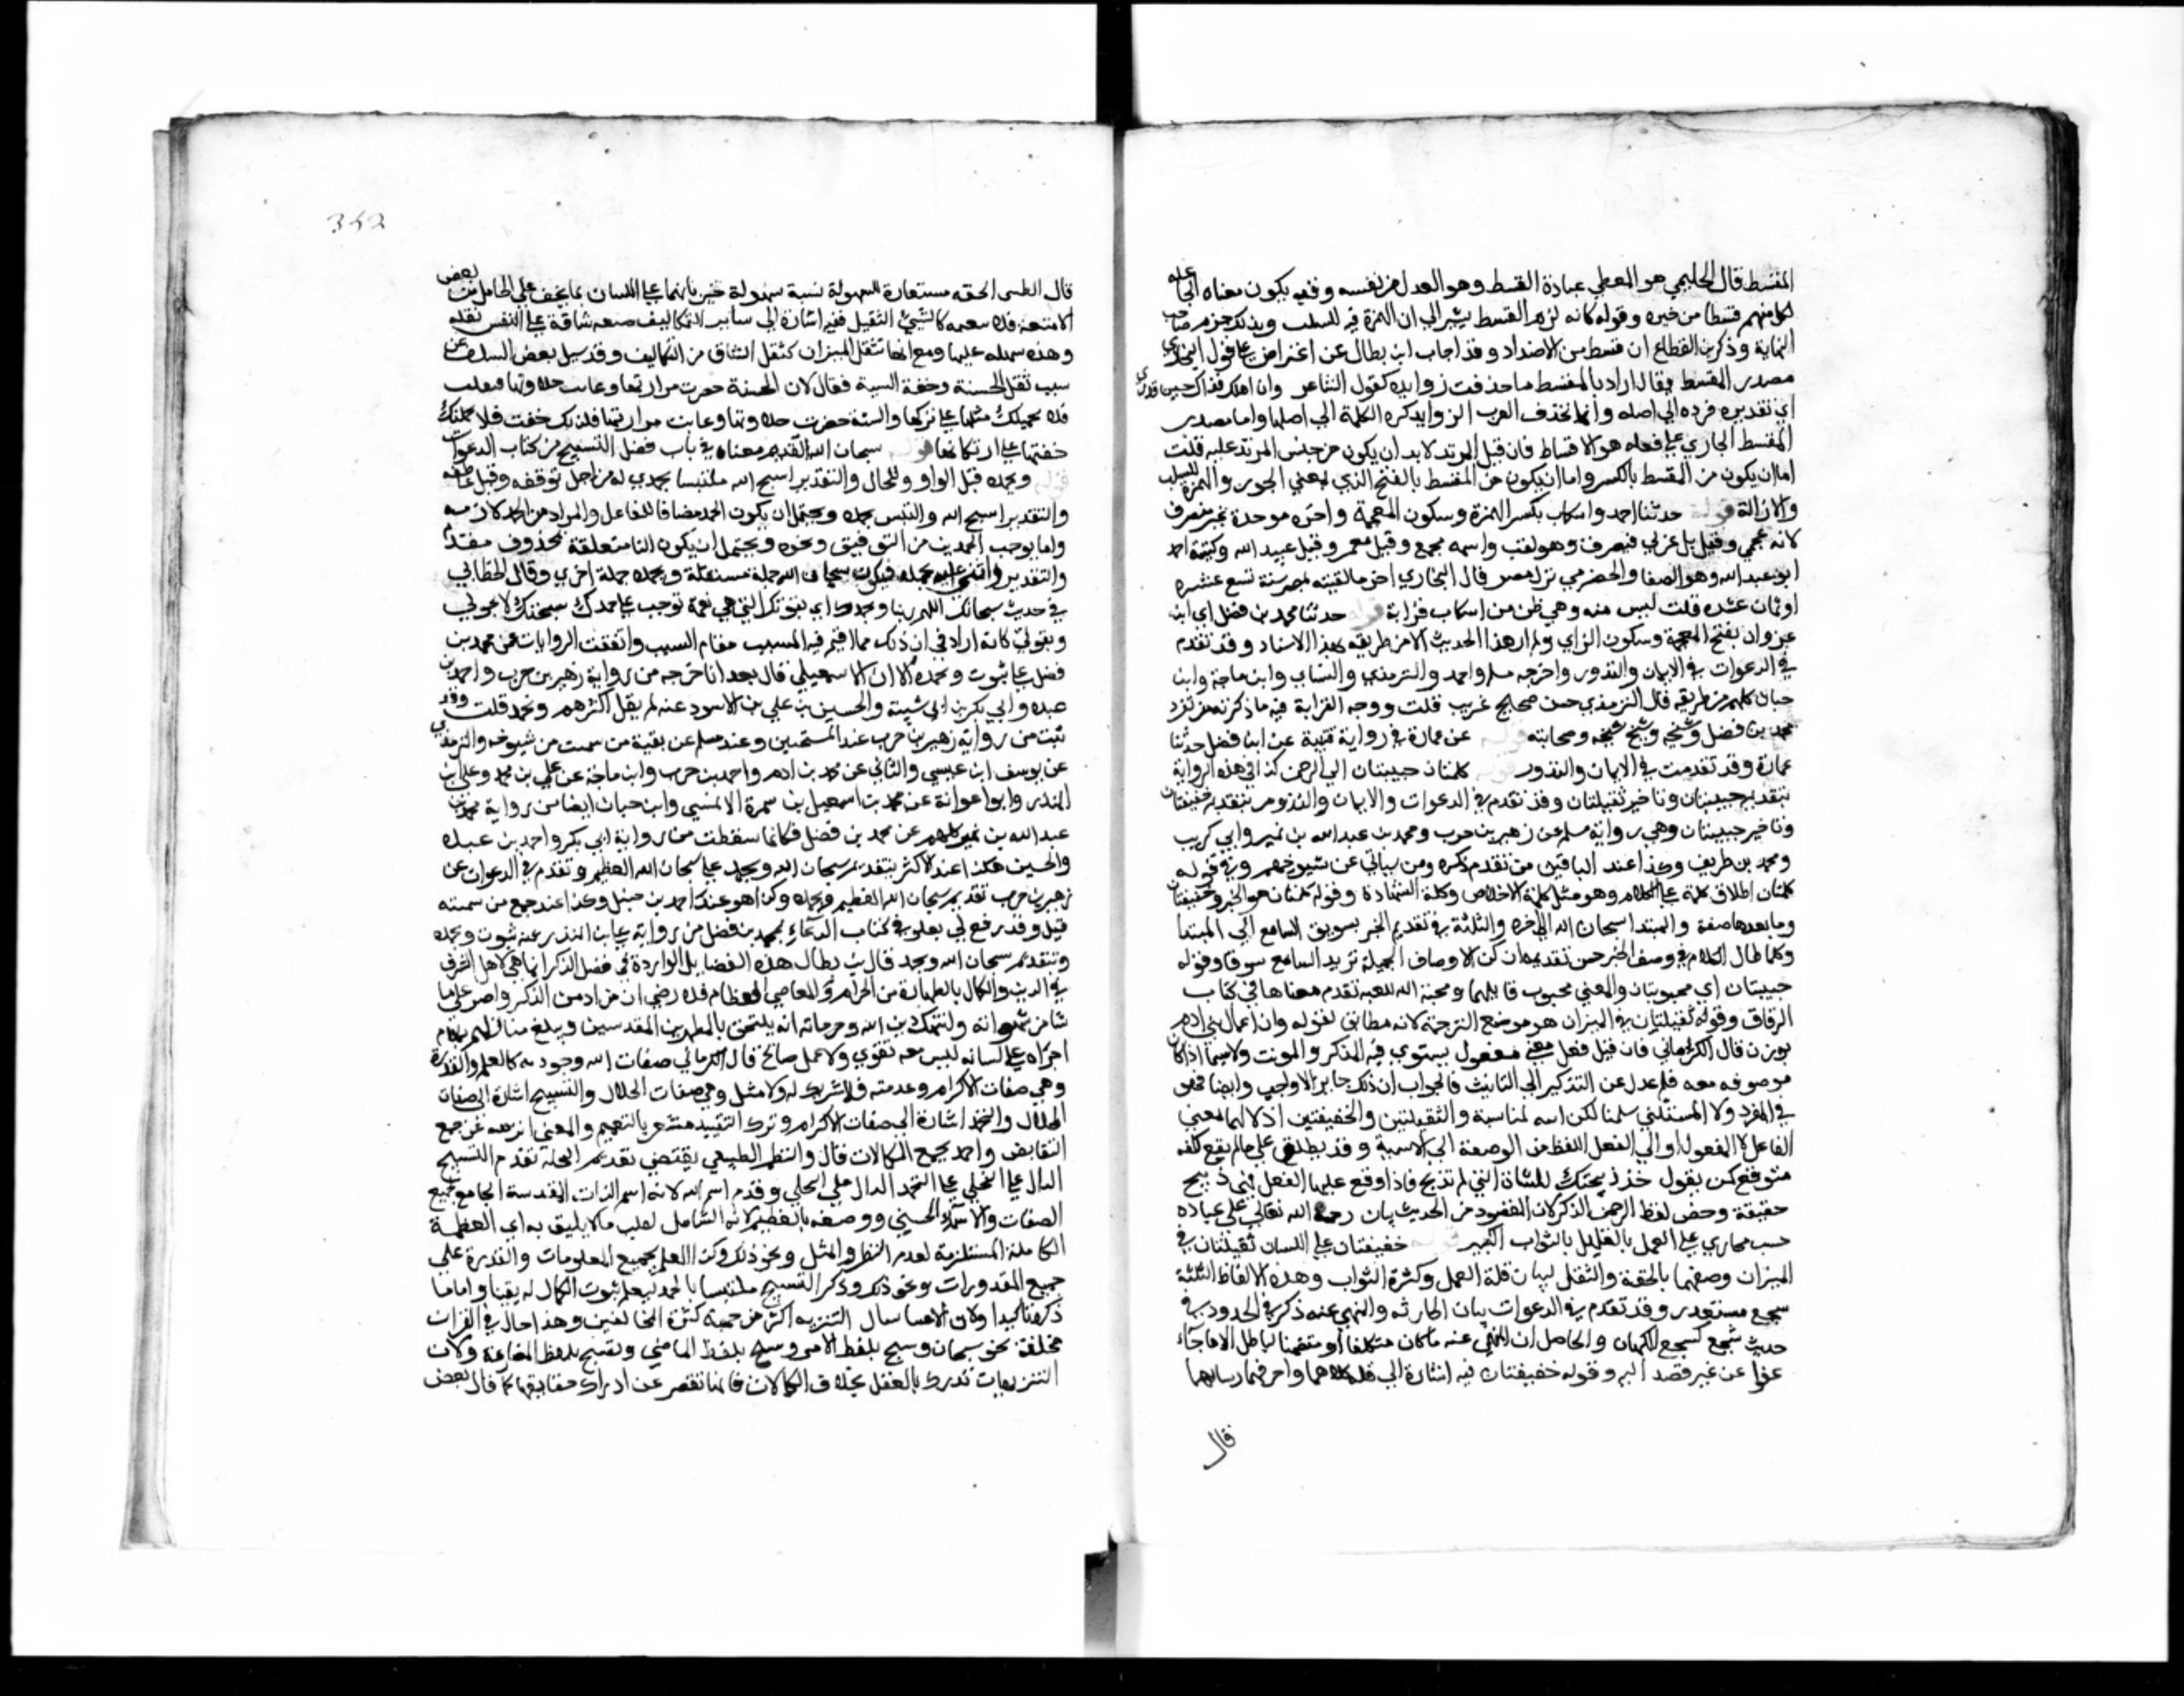 المقسط قال الحليمي هو المعطي عباده القسط وهو العدل من نفسه وقد يكون معناه المعطي
لكل منهم قسطا من خيره وقوله كانه لزمه القسط يشير الي ان الهمزة فيه للسلب وبذلك جزم صاحب
النهاية وذكر بن القطاع ان قسط من الاضداد وقد اجاب ابن بطال عن اعتراض علي قول البخاري
مصدر المقسط فقال اراد بالمقسط ما حذفت زوايده كقول الشاعر وان اهلك فذلك حين قدري
اي تقديري فرده الي اصله وانما تحذف العرب الزوايد لترد الكلمة الي اصلها واما مصدر
المقسط الجاري علي فعله هو الاقساط فان قيل المزيد لا بد ان يكون من جنس المزيد عليه قلت
اما ان يكون من القسط بالكسر واما ان يكون من القسط بالفتح الذي بمعني الجور والهمزة للسلب
والازالة قوله حدثنا احمد واشكاب بكسر الهمزة وسكون المعجمة واخره موحدة غير منصرف
لانه عجمي وقيل بل عربي فينصرف وهو لقب واسمه مجمع وقيل معمر وقيل عبيد الله وكنية احمد
ابو عبد الله وهو الصفار الحضرمي نزل مصر قال البخاري اخر ما لقيته بمصر سنة تسع عشرة
او ثمان عشرة قلت ليس منه وهي ظن من اشكاب قرابة قوله حدثنا محمد بن فضل اي ابن
غزوان بفتح المعجمة وسكون الزاي ولم ار هذا الحديث الا من طريقه بهذا الاسناد وقد تقدم
في الدعوات في الايمان والنذور واخرجه مسلم واحمد والترمذي والنساي وابن ماجة وابن
حبان كلهم من طريقه قال الترمذي حسن صحيح غريب قلت ووجه الغرابة فيه ما ذكرته من تفرد
محمد بن فضل وشيخه وشيخ شيخه وصحابته قوله عن عمارة في رواية قتيبة عن ابن فضل حدثنا
عمارة وقد تقدمت في الايمان والنذور قوله كلمتان حبيبتان الي الرحمن كذا في هذه الرواية
بتقديم حبيبتان وتاخير ثقيلتان وقد تقدم في الدعوات والايمان والنذور بتقديم خفيفتان
وتاخير حبيبتان وهي رواية مسلم عن زهير بن حرب ومحمد بن عبد الله بن نمير وابي كريب
ومحمد بن طريف وكذا عند الباقين ممن تقدم ذكره ومن سياتي عن شيوخهم وفي قوله
كلمتان اطلاق كلمة علي الكلام وهو مثل كلمة الاخلاص وكلمة الشهادة وقوله كلمتان هو الخبر وخفيفتان
وما بعدها صفة والمبتدا سبحان الله الي اخره والنكتة في تقديم الخبر تشويق السامع الي المبتدا
وكلما طال الكلام في وصف الخبر حسن تقديمه لان كثرة الاوصاف الجميلة تزيد السامع شوقا وقوله
حبيبتان اي محبوبتان والمعني محبوب قايلهما ومحبة الله للعبد تقدم معناها في كتاب
الرقاق وقوله ثقيلتان في الميزان هو موضع الترجمة لانه مطابق لقوله وان اعمال بني ادم
توزن قال الكرماني فان قيل فعيل بمعني مفعول يستوي فيه المذكر والمونث ولا سيما اذا كان
موصوفه معه فلم عدل عن التذكير الي التانيث فالجواب ان ذلك جايز لا واجب وايضا فهو
في المفرد ولا المستثني سلمنا لكن انه لمناسبة والثقيلتين والخفيفتين اذ لانهما بمعني
الفاعل لا المفعول او التا لنقل اللفظ من الوصفية الي الاسمية وقد يطلق علي ما لم يقع لكنه
متوقع كمن يقول خذ ذبيحتك للشاة التي لم تذبح فاذا وقع عليها الفعل فهي ذبيح
حقيقة وخص لفظ الرحمن بالذكر لان المقصود من الحديث بيان رحمة الله تعالي علي عباده
حيث يجازي علي العمل القليل بالثواب الكثير قوله خفيفتان علي اللسان ثقيلتان في
الميزان وصفهما بالخفة والثقل لبيان قلة العمل وكثرة الثواب وهذه الالفاظ الثلاثة
سجع مستعذب وقد تقدم في الدعوات بيان الجايز منه والمنهي عنه وذكر في الحدود في
حديث سجع كسجع الكهان والحاصل ان المنهي عنه ما كان متكلفا او متضمنا لباطل الا ما جاء
عفوا عن غير قصد اليه وقوله خفيفتان فيه اشارة الي قلة كلامهما واحرفهما ورشاقتهما
قال
قال الطيبي الخفة مستعارة للسهولة شبه سهولة جريانهما علي اللسان بما يخف علي الحامل من بعض
الامتعة فلا تتعبه كالشيء الثقيل ففيه اشارة الي ساير التكاليف صعبة شاقة علي النفس ثقيلة
وهذه سهلة عليها ومع انها تثقل الميزان كثقل الشاق من التكاليف وقد سيل بعض السلف عن
سبب ثقل الحسنة وخفة السية فقال لان الحسنة حضرت مرارتها وغابت حلاوتها فثقلت
فلا يحملنك ثقلها علي تركها والسية حضرت حلاوتها وغابت مرارتها فلذلك خفت فلا يحملنك
خفتها علي ارتكابها قوله سبحان الله تقدم معناه في باب فضل التسبيح من كتاب الدعوات
قوله وبحمده قيل الواو للحال والتقدير اسبح الله ملتبسا بحمدي له من اجل توفيقه وقيل عاطفة
والتقدير اسبح الله والتبس بحمده ويحتمل ان يكون الحمد مضافا للفاعل والمراد من الحمد لازمه
واما يوجب الحمد من التوفيق ونحوه ويحتمل ان يكون البا متعلقة بمحذوف متقدم
والتقدير واثني عليه بحمده فيكون سبحان الله جملة مستقلة وبحمده جملة اخري وقال الخطابي
في حديث سبحانك اللهم ربنا وبحمدك اي بقوتك التي هي نعمة توجب علي حمدك سبحتك لا بحولي
وبقوتي كانه اراد في ان ذلك مما اقيم فيه المسبب مقام السبب واتفقت الروايات عن محمد بن
فضل علي ثبوت وبحمده الا ان الاسمعيلي قال بعد ان اخرجه من رواية زهير بن حرب واحمد بن
عبده وابي بكر بن ابي شيبة والحسين بن علي بن الاسود عنه لم يقل اكثرهم وبحمده قلت وقد
ثبت من رواية زهير بن حرب عند الشيخين وعند مسلم عن بقية من سميت من شيوخه والترمذي
عن يوسف ابن عيسي والنسائي عن محمد بن ادم واحمد بن حرب وابن ماجة عن علي بن محمد وعلي بن
المنذر وابو عوانة عن محمد بن اسمعيل بن سمرة الاحمسي وابن حبان ايضا من رواية محمد بن
عبد الله بن نمير كلهم عن محمد بن فضل فكانها سقطت من رواية ابي بكر واحمد بن عبده
والحسين هكذا عند الاكثر بتقديم سبحان الله وبحمده علي سبحان الله العظيم وتقدم في الدعوات عن
زهير بن حرب تقديم سبحان الله العظيم وبحمده وكذا هو عند احمد بن حنبل وكذا عند جميع من سميته
قبل وقد وقع لي بعلو في كتاب الدعاء لمحمد بن فضل من رواية علي بن المنذر عنه بثبوت وبحمده
وبتقديم سبحان الله وبحمده قال بن بطال هذه الفضايل الواردة في فضل الذكر انما هي لاهل الشرف
في الدين والكمال بالطهارة من الحرام والمعاصي العظام فلا رضي ان من ادمن الذكر واصر علي ما
شا من شهواته وانتهك دين الله وحرماته انه يلتحق بالمطهرين المقدسين ويبلغ منازلهم بكلام
اجراه علي لسانه ليس معه تقوي ولا عمل صالح قال الكرماني صفات الله وجودية كالعلم والقدرة
وهي صفات الاكرام وعدمية فلا شريك له ولا مثل وهي صفات الجلال والتسبيح اشارة الي صفات
الجلال والتحميد اشارة الي صفات الاكرام وترك التقييد مشعر بالتعميم والمعني انزهه عن جميع
النقايص واحمده بجميع الكمالات قال والنظم الطبيعي يقتضي تقديم التحلية فقدم التسبيح
الدال علي التخلي علي التحميد الدال علي التحلي وقدم اسم الله لانه اسم الذات المقدسة الجامع لجميع
الصفات والاسماء الحسني ووصفه بالعظيم لانه الشامل لسلب ما لا يليق به اي العظمة
الكاملة المستلزمة لعدم النظير والمثل ونحو ذلك وكذا العلم بجميع المعلومات والقدرة علي
جميع المقدورات ونحو ذلك وذكر التسبيح ملتبسا بالحمد ليعلم ثبوت الكمال له يقينا واما ما
ذكر تاكيدا ولان الاعتنا بشان التنزيه اكثر من جهة كثرة المخالفين وهذا جاء في القران
مختلفة نحو سبحان وسبح بلفظ الامر وسبح بلفظ الماضي وتسبح بلفظ المضارعة ولان
التنزيهات تدرك بالعقل بخلاف الكمالات فانها تقصر عن ادراك حقايقها كما قال بعض